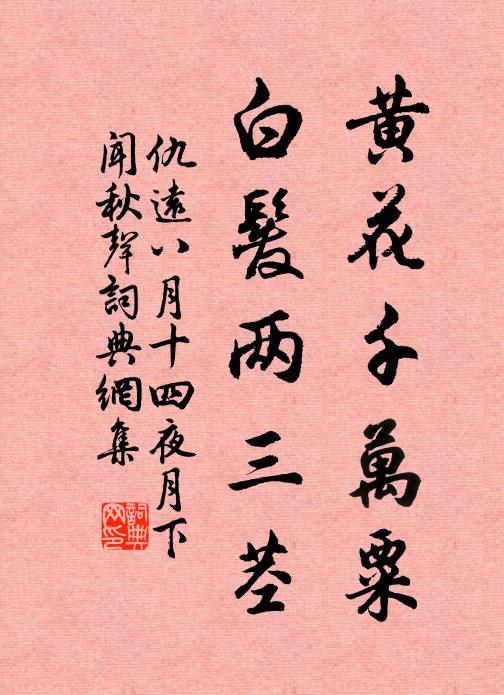 黄花千萬粟
白髮两三茎
仇遠八月十四夜月下
聞秋聲詞典網集
詞典
网印